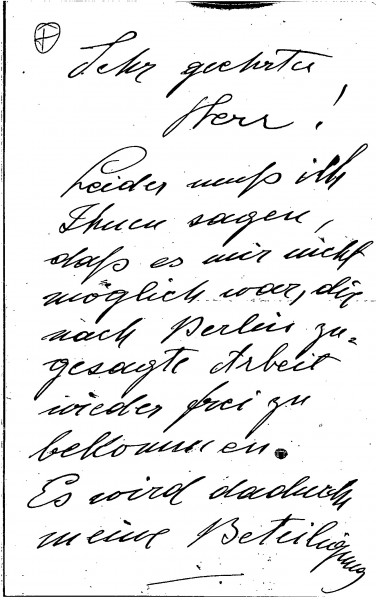 Sehr geehrter
Herr!
Leider muß ich
Ihnen sagen,
daß es mir nicht
möglich war, die
nach Berlin zu=
gesagte Arbeit
wieder frei zu
bekommen.
Es wird dadurch
meine Beteiligung